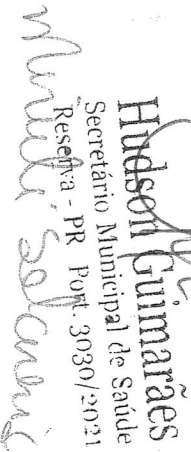 Hudson Guimarães
Secretário Municipal de Saúde
Reserva - PR Port. 3030/2021